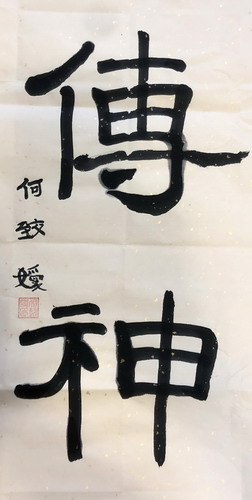 傳神
何致嬡